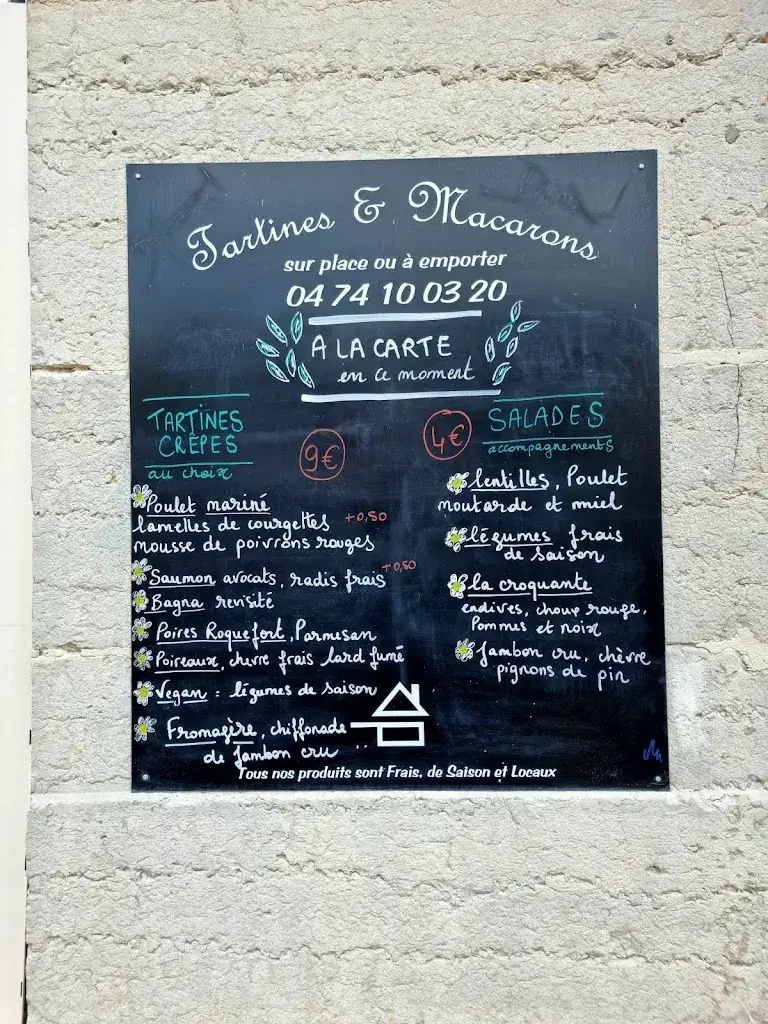 Tartines & Macarons
sur place ou à emporter
04 74 10 03 20
A LA CARTE
en ce moment
TARTINES
CRÊPES
au choix
9€
Poulet mariné
lamelles de courgettes +0,50
mousse de poivrons rouges
Saumon avocats, radis frais +0,50
Bagna revisité
Poires Roquefort, Parmesan
Poireaux, chevre frais lard fumé
Vegan : légumes de saison
Fromagère, chiffonade
de jambon cru
4€
SALADES
accompagnements
lentilles, Poulet
moutarde et miel
légumes frais
de saison
la croquante
endives, choux rouge,
Pommes et noix
Jambon cru, chèvre
pignons de pin
Tous nos produits sont Frais, de Saison et Locaux